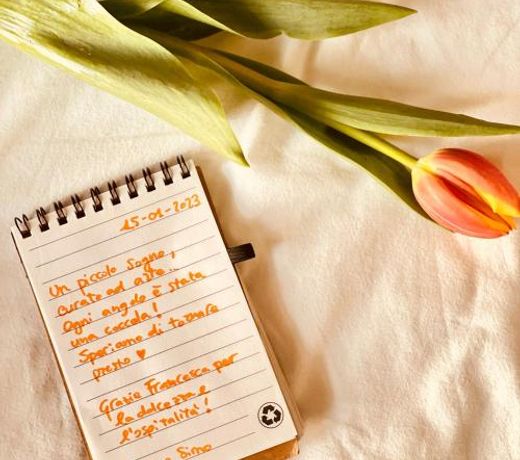 15-01-2023
Un piccolo sogno,
curato ad arte..
Ogni angolo è stata
una coccola!
Speriamo di tornare
presto ♥
Grazie Francesca per
la dolcezza e
l'ospitalità!
Simo